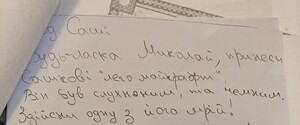 д Саші
Будь-ласка Миколай, принеси
Сашкові "лего майнкрафт"
Він був слухняним, та чемним.
Здійсни одну з його мрій!